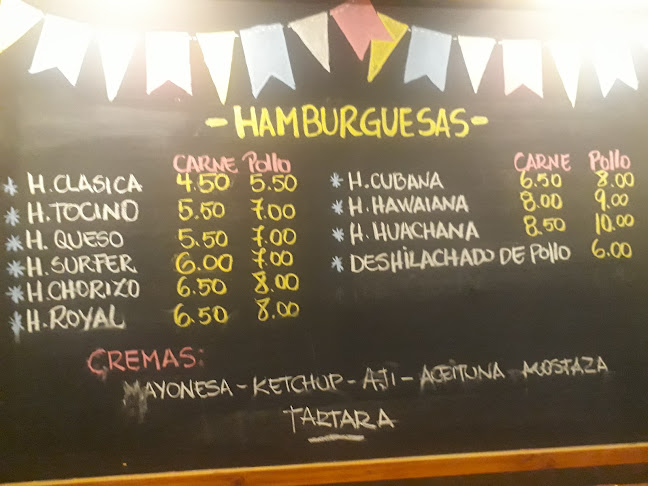 -HAMBURGUESAS-
CARNE POLLO
* H. CLASICA 4.50 5.50
* H. TOCINO 5.50 7.00
* H. QUESO 5.50 7.00
* H. SURFER 6.00 7.00
* H. CHORIZO 6.50 8.00
* H. ROYAL 6.50 8.00
CARNE POLLO
* H. CUBANA 6.50 8.00
* H. HAWAIANA 8.00 9.00
* H. HUACHANA 8.50 10.00
* DESHILACHADO DE POLLO 6.00
CREMAS:
MAYONESA - KETCHUP - AJI - ACEITUNA MOSTAZA
TARTARA